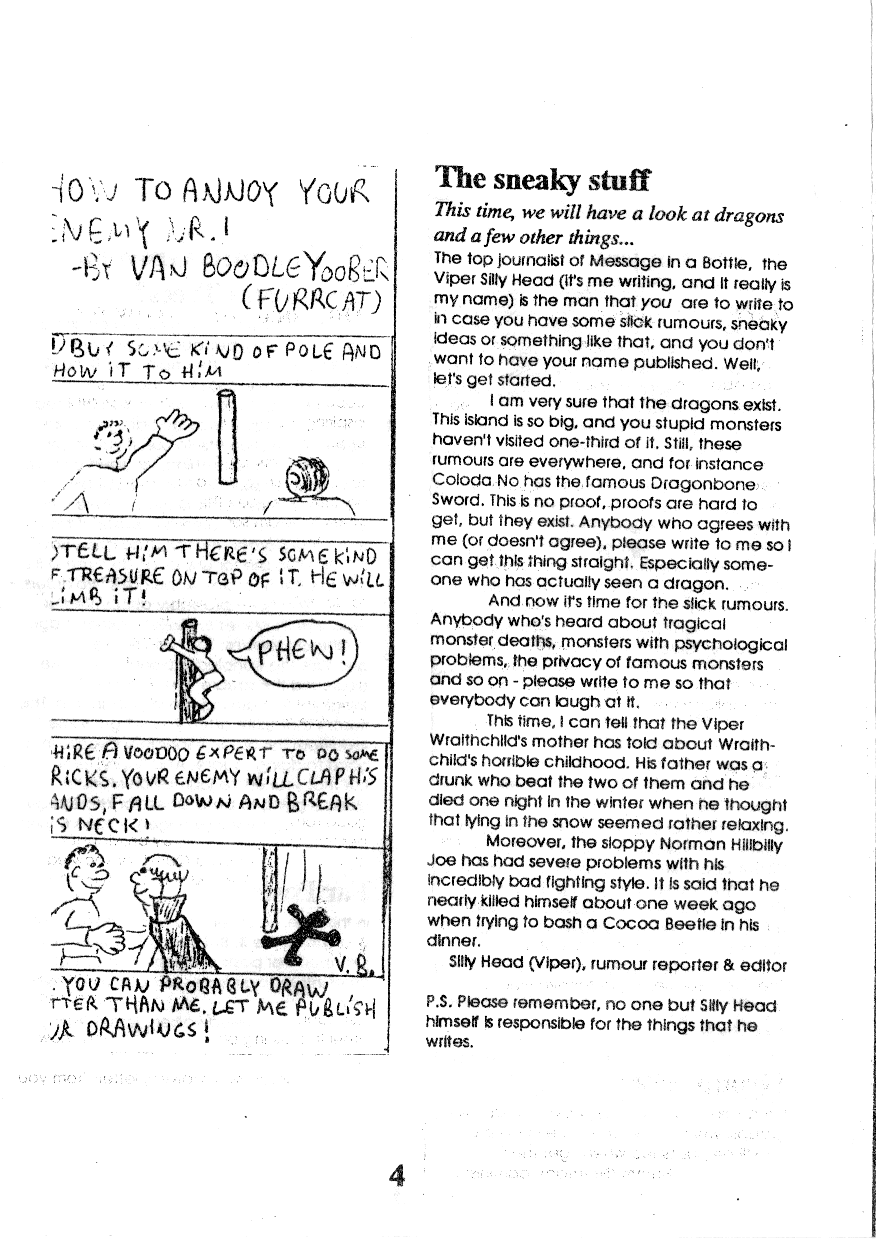 HOW TO ANNOY YOUR
ENEMY NR.1
-BY VAN BOODLEYOOBER
(FURRCAT)
)BUY SOME KIND OF POLE AND
HOW IT TO HIM
)TELL HIM THERE'S SOME KIND
F TREASURE ON TOP OF IT. HE WILL
LIMB IT!
PHEW!
HIRE A VOODOO EXPERT TO DO SOME
RICKS. YOUR ENEMY WILL CLAP HIS
ANDS, FALL DOWN AND BREAK
IS NECK!
V.B.
. YOU CAN PROBABLY DRAW
TTER THAN ME. LET ME PUBLISH
UR DRAWINGS!
The sneaky stuff
This time, we will have a look at dragons
and a few other things...
The top journalist of Message in a Bottle, the
Viper Silly Head (it's me writing, and it really is
my name) is the man that you are to write to
in case you have some slick rumours, sneaky
ideas or something like that, and you don't
want to have your name published. Well,
let's get started.
I am very sure that the dragons exist.
This island is so big, and you stupid monsters
haven't visited one-third of it. Still, these
rumours are everywhere, and for instance
Coloda No has the famous Dragonbone
Sword. This is no proof, proofs are hard to
get, but they exist. Anybody who agrees with
me (or doesn't agree), please write to me so I
can get this thing straight. Especially some-
one who has actually seen a dragon.
And now it's time for the slick rumours.
Anybody who's heard about tragical
monster deaths, monsters with psychological
problems, the privacy of famous monsters
and so on - please write to me so that
everybody can laugh at it.
This time, I can tell that the Viper
Wraithchild's mother has told about Wraith-
child's horrible childhood. His father was a
drunk who beat the two of them and he
died one night in the winter when he thought
that lying in the snow seemed rather relaxing.
Moreover, the sloppy Norman Hillbilly
Joe has had severe problems with his
incredibly bad fighting style. It is said that he
nearly killed himself about one week ago
when trying to bash a Cocoa Beetle in his
dinner.
Silly Head (Viper), rumour reporter & editor
P.S. Please remember, no one but Silly Head
himself is responsible for the things that he
writes.
4